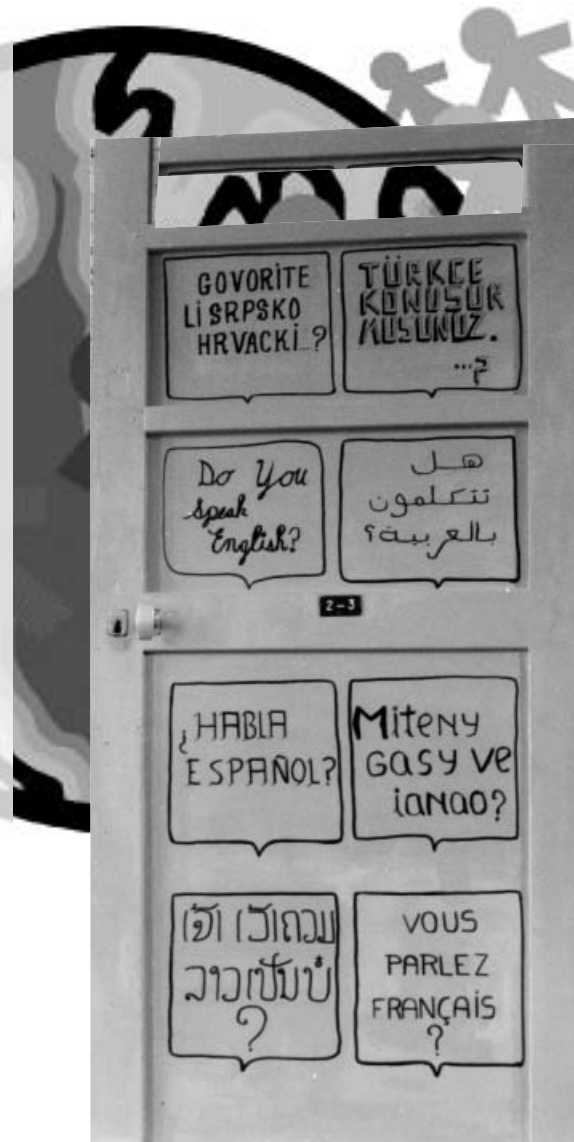 GOVORITE
Li SRPSKO
HRVACKi...?
TÜRKÇE
KONUŞUR
MUSUNUZ.
...?
Do You
Speak
English?
هل
تتكلمون
بالعربية؟
2-3
¿HABLA
ESPAÑOL?
MiteNy
Gasy ve
iaNao?
ເຈົ້າ ເວົ້າຄວາມ
ລາວເປັນບໍ່
?
VOUS
PARLEZ
FRANÇAiS
?